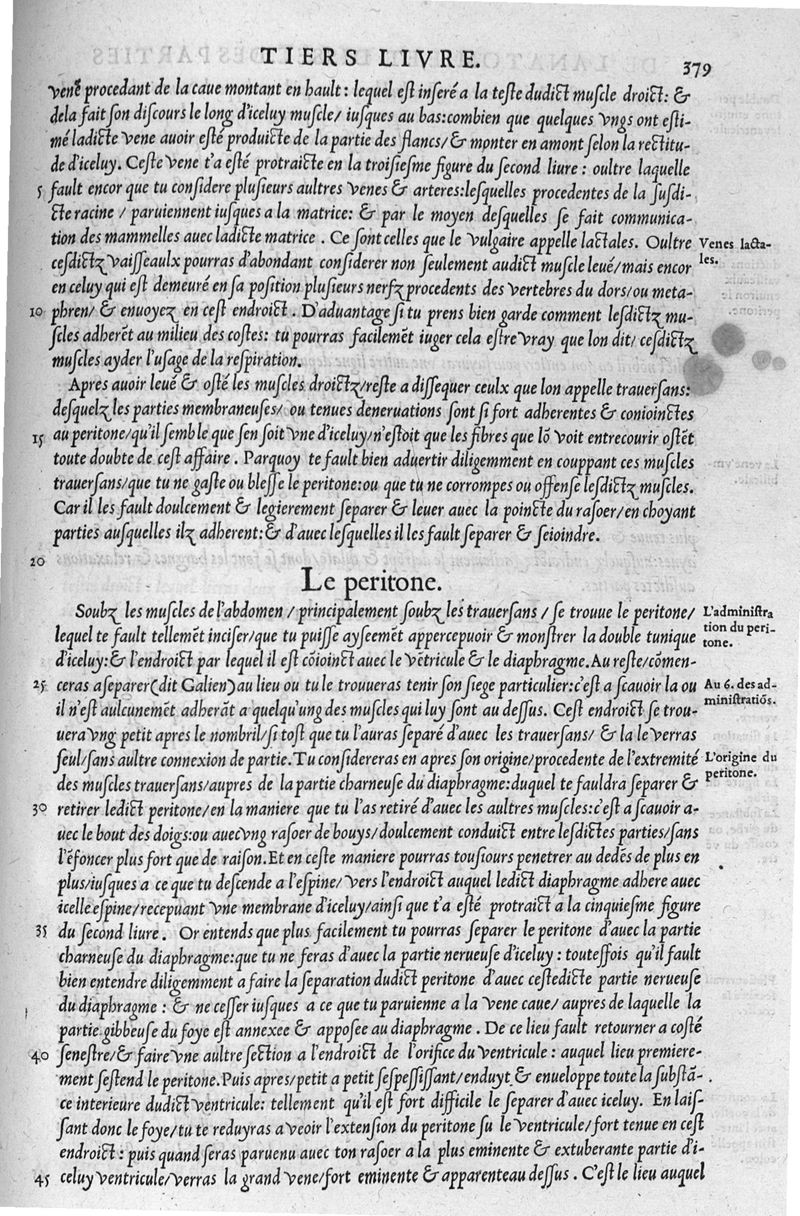 TIERS LIVRE.
379
vene procedant de la caue montant en hault : lequel est inseré a la teste dudict muscle droict: &
dela fait son discours le long d'iceluy muscle/ iusques au bas:combien que quelques vngs ont esti-
mé ladicte vene auoir esté produicte de la partie des flancs/ & monter en amont selon la rectitu-
de d'iceluy. Ceste vene t'a esté protraicte en la troisiesme figure du second liure : oultre laquelle
5 fault encor que tu considere plusieurs aultres venes & arteres:lesquelles procedentes de la susdi-
cte racine / paruiennent iusques a la matrice: & par le moyen desquelles se fait communica-
tion des mammelles auec ladicte matrice . Ce sont celles que le vulgaire appelle lactales. Oultre
Venes lacta-
les.
cesdictz vaisseaulx pourras d'abondant considerer non seulement audict muscle leué/mais encor
en celuy qui est demeuré en sa position plusieurs nerfz procedents des vertebres du dors/ou meta-
10 phren/ & enuoyez en cest endroict . D'aduantage si tu prens bien garde comment lesdictz mu-
scles adherēt au milieu des costes: tu pourras facilemēt iuger cela estre vray que lon dit/ cesdictz
muscles ayder l'usage de la respiration.
Apres auoir leué & osté les muscles droictz/reste a dissequer ceulx que lon appelle trauersans:
desquelz les parties membraneuses/ ou tenues deneruations sont si fort adherentes & conioinctes
15 au peritone/qu'il semble que sen soit vne d'iceluy/n'estoit que les fibres que lō voit entrecourir ostēt
toute doubte de cest affaire . Parquoy te fault bien aduertir diligemment en couppant ces muscles
trauersans/que tu ne gaste ou blesse le peritone:ou que tu ne corrompes ou offense lesdictz muscles.
Car il les fault doulcement & legierement separer & leuer auec la poincte du rasoer/en choyant
parties ausquelles ilz adherent:& d'auec lesquelles il les fault separer & seioindre.
20
Le peritone.
Soubz les muscles de l'abdomen / principalement soubz les trauersans / se trouue le peritone/
L'administra
tion du peri-
tone.
lequel te fault tellemēt inciser/que tu puisse ayseemēt appercepuoir & monstrer la double tunique
d'iceluy:& l'endroict par lequel il est cōioinct auec le vētricule & le diaphragme.Au reste/cōmen-
25 ceras aseparer(dit Galien)au lieu ou tu le trouueras tenir son siege particulier:c'est a scauoir la ou
Au 6. des ad-
ministratiōs.
il n'est aulcunemēt adherāt a quelqu'ung des muscles qui luy sont au dessus. Cest endroict se trou-
uera vng petit apres le nombril/si tost que tu l'auras separé d'auec les trauersans/ & la le verras
seul/sans aultre connexion de partie.Tu considereras en apres son origine/procedente de l'extremité
L'origine du
peritone.
des muscles trauersans/aupres de la partie charneuse du diaphragme:duquel te fauldra separer &
30 retirer ledict peritone/en la maniere que tu l'as retiré d'auec les aultres muscles:c'est a scauoir a-
uec le bout des doigs:ou auec vng rasoer de bouys/doulcement conduict entre lesdictes parties/sans
l'ēfoncer plus fort que de raison.Et en ceste maniere pourras tousiours penetrer au dedēs de plus en
plus/iusques a ce que tu descende a l'espine/ vers l'endroict auquel ledict diaphragme adhere auec
icelle espine/recepuant vne membrane d'iceluy/ainsi que t'a esté protraict a la cinquiesme figure
35 du second liure . Or entends que plus facilement tu pourras separer le peritone d'auec la partie
charneuse du diaphragme:que tu ne feras d'auec la partie nerueuse d'iceluy : toutessois qu'il fault
bien entendre diligemment a faire la separation dudict peritone d'auec cestedicte partie nerueuse
du diaphragme : & ne cesser iusques a ce que tu paruienne a la vene caue/ aupres de laquelle la
partie gibbeuse du foye est annexee & apposee au diaphragme . De ce lieu fault retourner a costé
40 senestre/& faire vne aultre section a l'endroict de l'orifice du ventricule : auquel lieu premiere-
ment sestend le peritone.Puis apres/petit a petit sespessissant/enduyt & enueloppe toute la substā-
ce interieure dudict ventricule: tellement qu'il est fort difficile le separer d'auec iceluy. En lais-
sant donc le foye/tu te reduyras a veoir l'extension du peritone su le ventricule/fort tenue en cest
endroict : puis quand seras paruenu auec ton rasoer a la plus eminente & extuberante partie d'i-
45 celuy ventricule/verras la grand vene/fort eminente & apparenteau dessus . C'est le lieu auquel